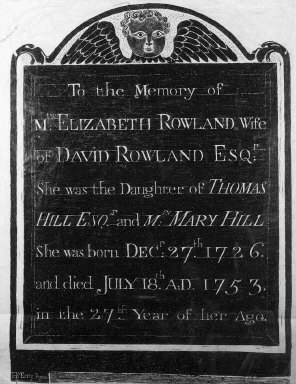 To the Memory of
Mrs. ELIZABETH ROWLAND Wife
of DAVID ROWLAND ESQr.
She was the Daughter of THOMAS
HILL ESQr. and Mrs. MARY HILL
She was born DECr. 27th 1726.
and died JULY 18th. A.D. 1753.
in the 27th Year of her Age.